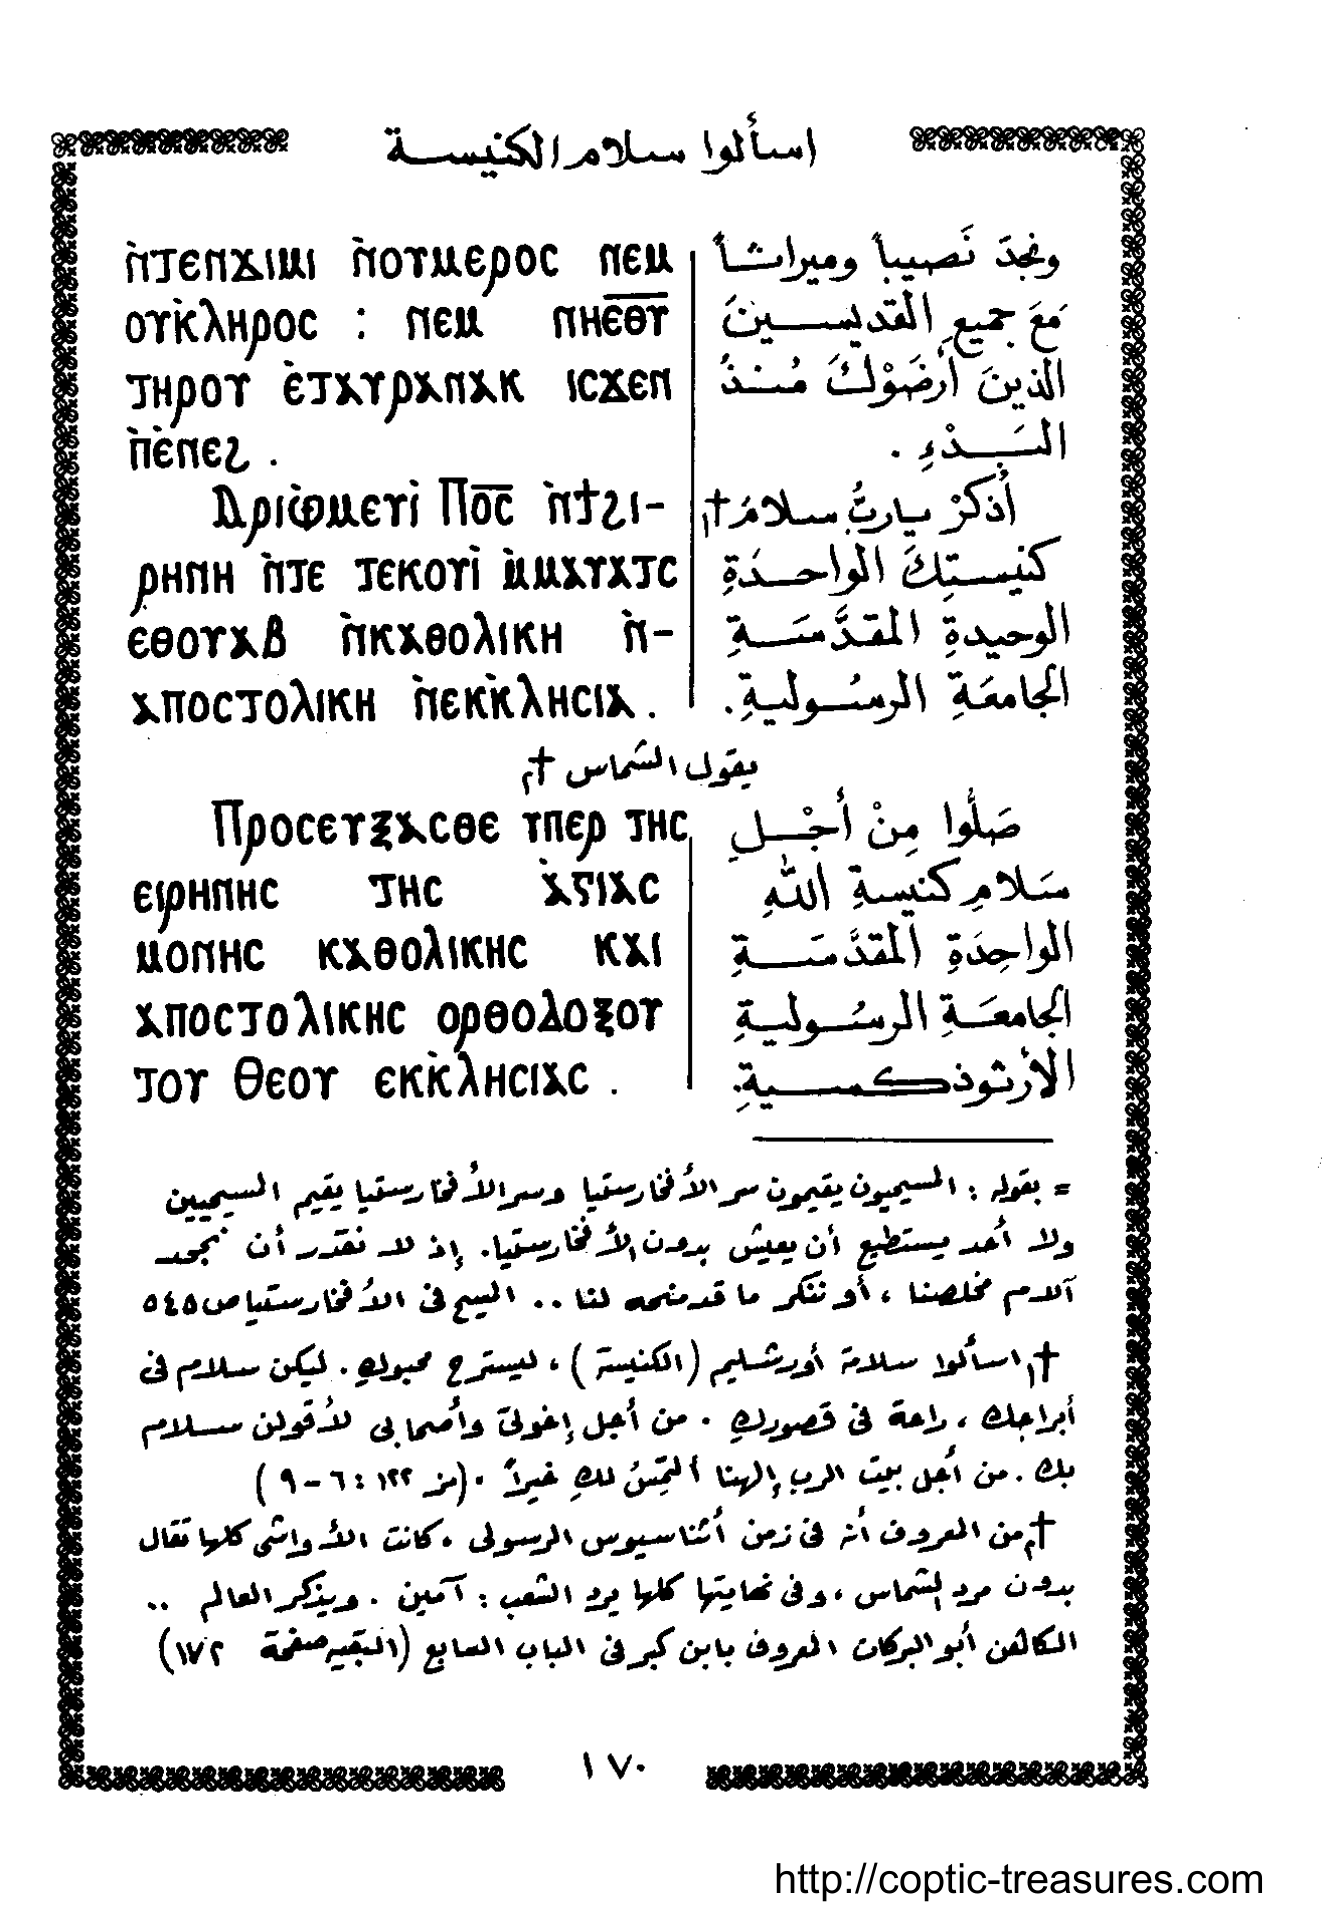 اسألوا سلام الكنيسة
ⲛ̀ⲧⲉⲛϫⲓⲙⲓ ⲛ̀ⲟⲩⲙⲉⲣⲟⲥ ⲛⲉⲙ
ⲟⲩⲕ̀ⲗⲏⲣⲟⲥ : ⲛⲉⲙ ⲛⲏⲉ̅ⲑ̅ⲩ̅
ⲧⲏⲣⲟⲩ ⲉ̀ⲧⲁⲩⲣⲁⲛⲁⲕ ⲓⲥϫⲉⲛ
ⲡ̀ⲉ̀ⲛⲉϩ .
Ⲁⲣⲓⲫ̀ⲙⲉⲩⲓ̀ Ⲡⲟ̅ⲥ̅ ⲛ̀ϯϩⲓ-
ⲣⲏⲛⲏ ⲛ̀ⲧⲉ ⲧⲉⲕⲟⲩⲓ̀ ⲙ̀ⲙⲁⲩⲁⲧⲥ
ⲉⲑⲟⲩⲁⲃ ⲛ̀ⲕⲁⲑⲟⲗⲓⲕⲏ ⲛ̀-
ⲁⲡⲟⲥⲧⲟⲗⲓⲕⲏ ⲛ̀ⲉⲕⲕ̀ⲗⲏⲥⲓⲁ .
ونجدَ نَصيباً وميراثاً
مَعَ جميعِ القديسينَ
الذينَ أرضَوْكَ مُنذُ
البَدْءِ .
أُذكُرْ ياربُّ سلامَ †١
كنيستِكَ الواحدَةِ
الوحيدةِ المقدَّسَةِ
الجامعَةِ الرسُوليةِ .
يقول الشماس †٢
Ⲡⲣⲟⲥⲉⲩⲝⲁⲥⲑⲉ ⲩⲡⲉⲣ ⲧⲏⲥ
ⲉⲓⲣⲏⲛⲏⲥ ⲧⲏⲥ ⲁ̀ⲅⲓⲁⲥ
ⲙⲟⲛⲏⲥ ⲕⲁⲑⲟⲗⲓⲕⲏⲥ ⲕⲁⲓ
ⲁⲡⲟⲥⲧⲟⲗⲓⲕⲏⲥ ⲟⲣⲑⲟⲇⲟⲝⲟⲩ
ⲧⲟⲩ Ⲑⲉⲟⲩ ⲉⲕⲕ̀ⲗⲏⲥⲓⲁⲥ .
صَلُّوا مِنْ أَجْلِ
سَلامِ كنيسةِ اللهِ
الواحِدَةِ المقدَّسَةِ
الجامعَةِ الرسُوليةِ
الأرثوذكسيةِ.
= بقوله : المسيحيون يقيمون سر الأفخارستيا وسر الأفخارستيا يقيم المسيحيين
ولا أحد يستطيع أن يعيش بدون الأفخارستيا. إذ لا نقدر أن نجحد
آلام مخلصنا ، أو ننكر ما قد منحه لنا .. المسيح فى الأفخارستيا ص ٥٤٥
†١ اسألوا سلامة أورشليم (الكنيسة) ، ليسترح محبوكِ . ليكن سلام فى
أبراجك ، راحة فى قصوركِ . من أجل إخوتى وأصحابى لأقولن سلام
بك . من أجل بيت الرب إلهنا ألتمسُ لكِ خيراً . (مز ١٢٢ : ٦ - ٩)
†٢ من المعروف أنه فى زمن أثناسيوس الرسولى ، كانت الأواشى كلها تقال
بدون مرد الشماس ، وفى نهايتها كلها يرد الشعب : آمين . ويذكر العالم ..
الكاهن أبو البركات المعروف بابن كبر فى الباب السابع (البقيه صفحة ١٧٢)
١٧٠
http://coptic-treasures.com